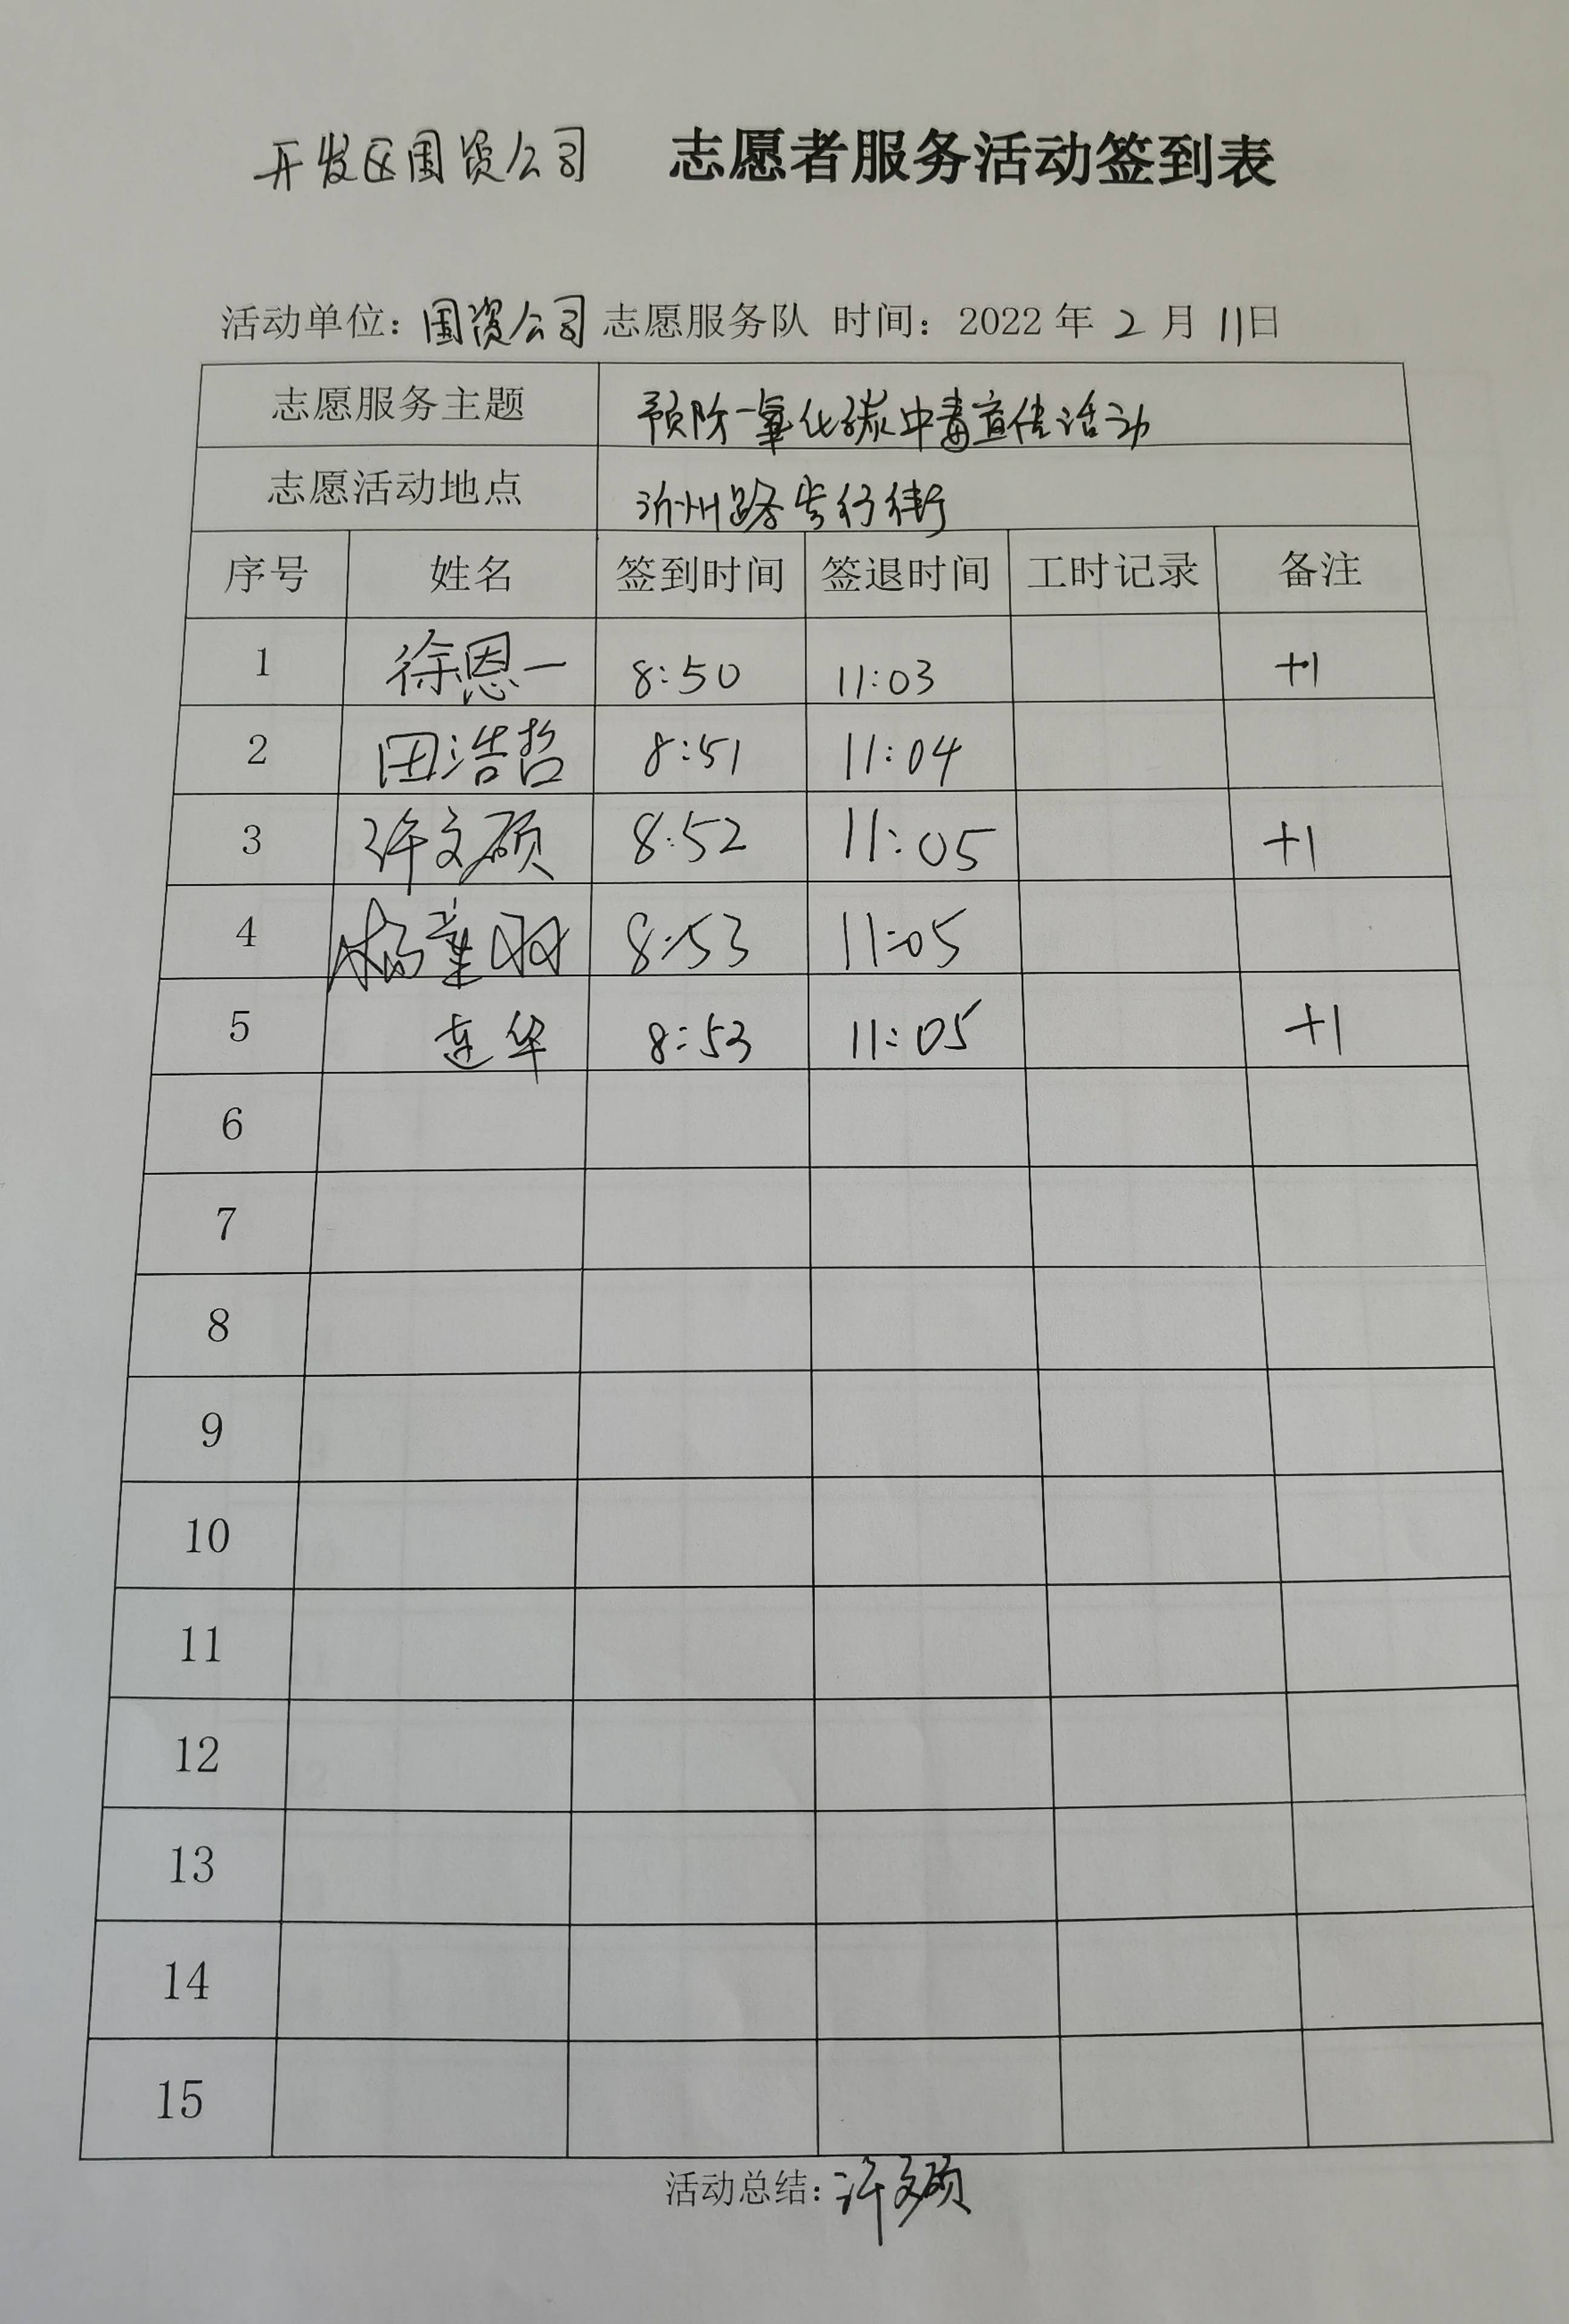 开发区国资公司 志愿者服务活动签到表
活动单位：国资公司志愿服务队 时间：2022年2月11日
志愿服务主题 预防一氧化碳中毒宣传活动
志愿活动地点 沂州路步行街
序号 姓名 签到时间 签退时间 工时记录 备注
1 徐恩一 8:50 11:03 +1
2 田浩哲 8:51 11:04
3 许文硕 8:52 11:05 +1
4 8:53 11:05
5 连华 8:53 11:05 +1
6
7
8
9
10
11
12
13
14
15
活动总结：许文硕